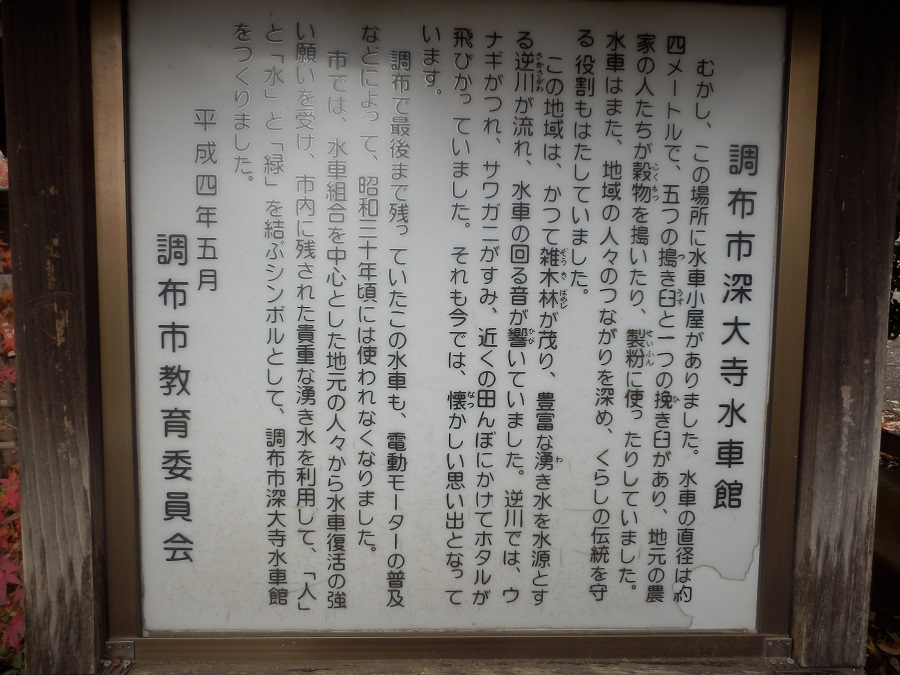 調布市深大寺水車館
むかし、この場所に水車小屋がありました。水車の直径は約
四メートルで、五つの搗き臼と一つの挽き臼があり、地元の農
家の人たちが穀物を搗いたり、製粉に使ったりしていました。
水車はまた、地域の人々のつながりを深め、くらしの伝統を守
る役割もはたしていました。
この地域は、かつて雑木林が茂り、豊富な湧き水を水源とす
る逆川が流れ、水車の回る音が響いていました。逆川では、ウ
ナギがつれ、サワガニがすみ、近くの田んぼにかけてホタルが
飛びかっていました。それも今では、懐かしい思い出となって
います。
調布で最後まで残っていたこの水車も、電動モーターの普及
などによって、昭和三十年頃には使われなくなりました。
市では、水車組合を中心とした地元の人々から水車復活の強
い願いを受け、市内に残された貴重な湧き水を利用して、「人」
と「水」と「緑」を結ぶシンボルとして、調布市深大寺水車館
をつくりました。
平成四年五月
調布市教育委員会